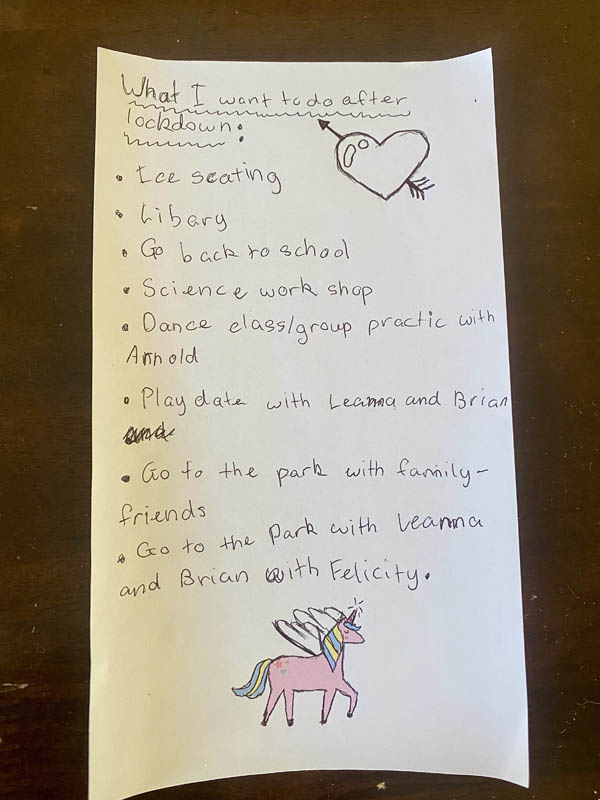 What I want to do after
lockdown:
• Ice scating
• Libary
• Go back to school
• Science work shop
• Dance class/group practic with
Arnold
• Play date with Leanna and Brian
• Go to the park with family-
friends
• Go to the Park with Leanna
and Brian with Felicity.